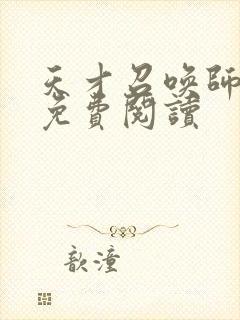 天才召喚師
免費閱讀
歆潼